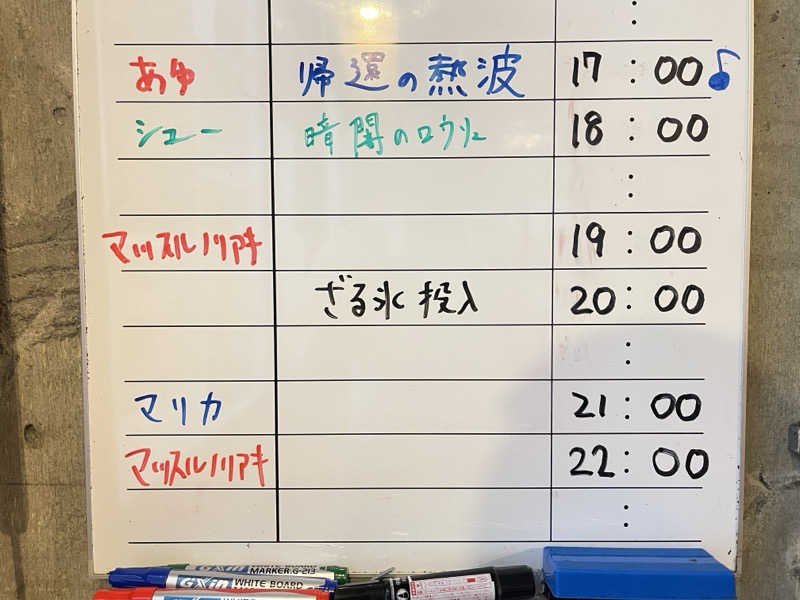 :
あゆ 帰還の熱波 17:00♪
シュー 暗闇のロウリュ 18:00
:
マッスルノリアキ 19:00
ざる氷投入 20:00
:
マリカ 21:00
マッスルノリアキ 22:00
:
MARKER.G-213
GXin WHITE BOARD